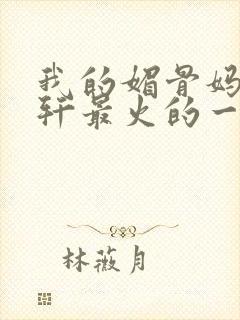 我的媚骨妈
轩最火的一
林薇月